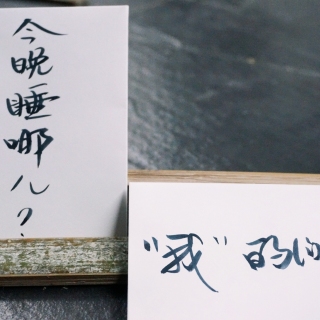 今晚睡哪儿？
“我”的